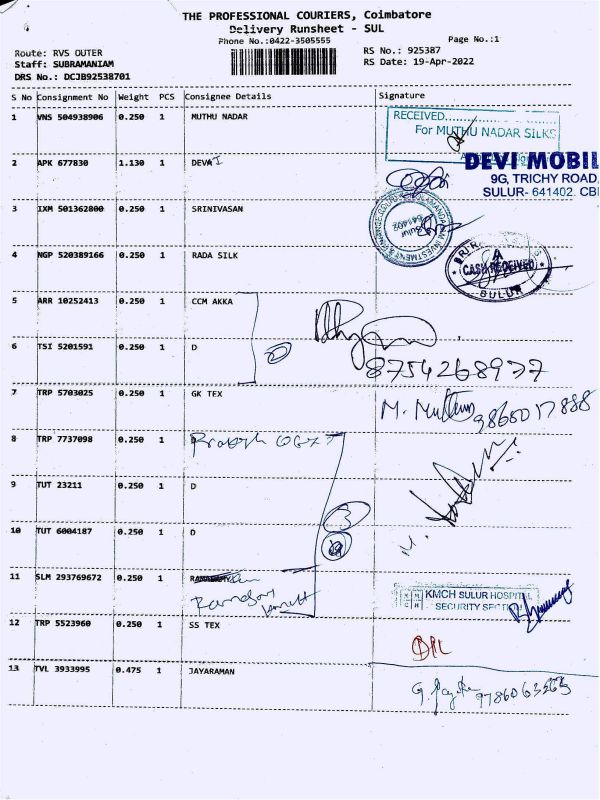 THE PROFESSIONAL COURIERS, Coimbatore
Delivery Runsheet - SUL
Phone No.:0422-3505555
Page No.:1
Route: RVS OUTER
Staff: SUBRAMANIAM
DRS No.: DCJB92538701
RS No.: 925387
RS Date: 19-Apr-2022
S No Consignment No Weight PCS Consignee Details Signature
1 VNS 504938906 0.250 1 MUTHU NADAR
RECEIVED..............
For MUTHU NADAR SILKS
2 APK 677830 1.130 1 DEVAI
DEVI MOBIL
9G, TRICHY ROAD,
SULUR- 641402. CB
3 IXM 501362800 0.250 1 SRINIVASAN
INVESTMENT & FINANCE
Sulur
641402
4 NGP 520389166 0.250 1 RADA SILK
CASH RECEIVED
SULUR
5 ARR 10252413 0.250 1 CCM AKKA
6 TSI 5201591 0.250 1 D
8754268977
7 TRP 5703025 0.250 1 GK TEX
M. 9865017888
8 TRP 7737098 0.250 1
9 TUT 23211 0.250 1 D
10 TUT 6004187 0.250 1 D
M.
11 SLM 293769672 0.250 1
KMCH SULUR HOSPITAL
SECURITY SECTION
12 TRP 5523960 0.250 1 SS TEX
13 TVL 3933995 0.475 1 JAYARAMAN